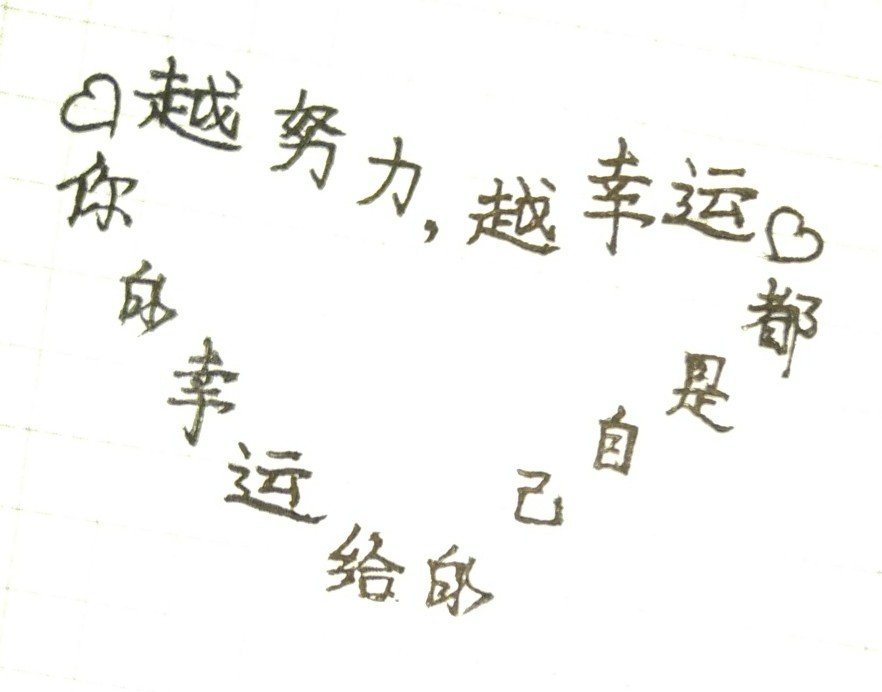 越努力，越幸运
你的幸运
都是自己给的